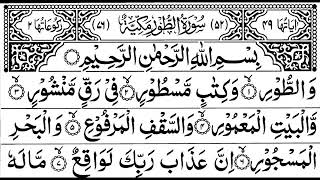 اٰیَاتُهَا ٤٩ (٥٢) سُوْرَةُ الطُّوْرِ مَكِّیَّةٌ (٧٦) رُكُوْعَاتُهَا ٢
بِسْمِ اللّٰهِ الرَّحْمٰنِ الرَّحِیْمِ
وَ الطُّوْرِ ۝١ وَ كِتٰبٍ مَّسْطُوْرٍ ۝٢ فِیْ رَقٍّ مَّنْشُوْرٍ ۝٣
وَّ الْبَیْتِ الْمَعْمُوْرِ ۝٤ وَ السَّقْفِ الْمَرْفُوْعِ ۝٥ وَ الْبَحْرِ
الْمَسْجُوْرِ ۝٦ اِنَّ عَذَابَ رَبِّكَ لَوَاقِعٌ ۝٧ مَّا لَهٗ